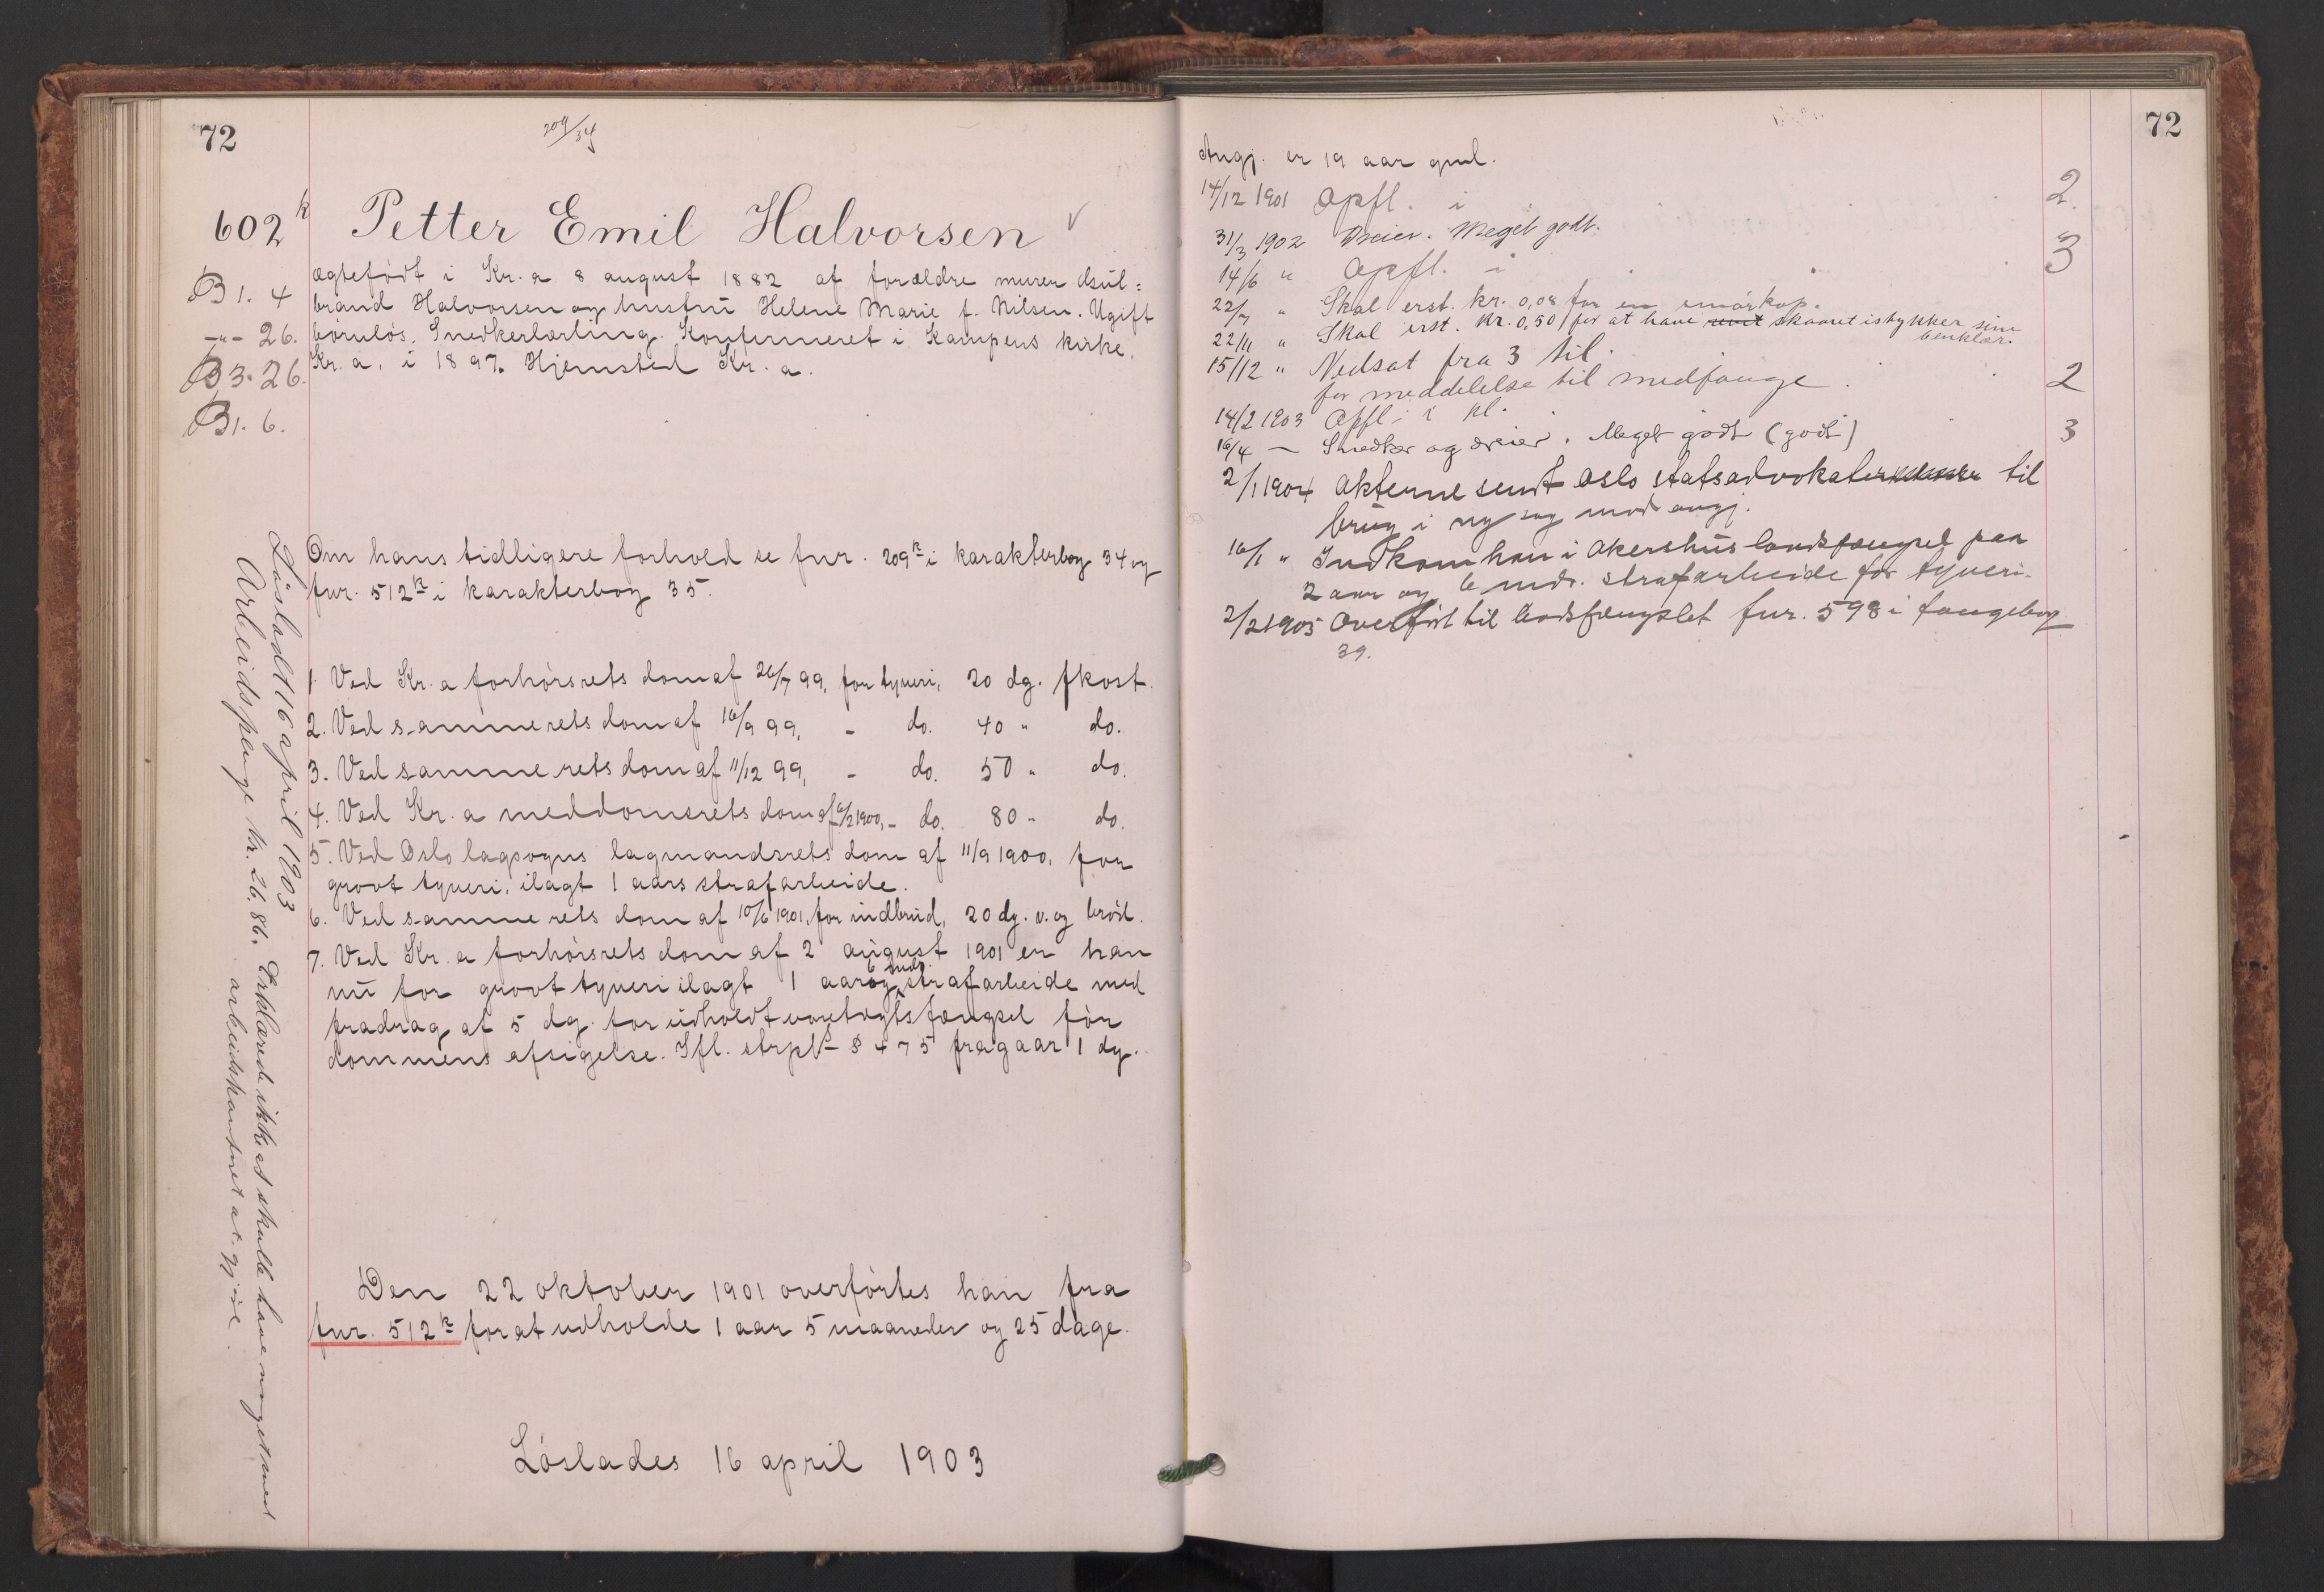 72
209/34
602k Petter Emil Halvorsen
ægtefødt i Kr.a 8 august 1882 af forældre murer Gul=
brand Halvorsen og hustru Helene Marie f. Nilsen. Ugift
børnløs. Snedkerlærling. Konfirmeret i Kampens kirke,
Kr.a. i 1897. Hjemsted Kr.a.
B 1. 4
-"- 26.
B 3. 26.
B 1. 6.
Om hans tidligere forhold se fnr. 209k i karakterbog 34 og
fnr. 512k i karakterbog 35.
1. Ved Kr.a forhørsrets dom af 26/7 99, for tyveri, 20 dg. fkost.
2. Ved samme rets dom af 16/9 99, - do. 40 " do.
3. Ved samme rets dom af 11/12 99, - do. 50 " do.
4. Ved Kr.a meddomsrets dom af 6/2 1900, - do. 80 - do.
5. Ved Oslo lagsogns lagmandsrets dom af 11/9 1900, for
grovt tyveri, ilagt 1 aars strafarbeide.
6. Ved samme rets dom af 10/6 1901, for indbrud, 20 dg. v. og brød.
7. Ved Kr.a forhørsrets dom af 2 august 1901 er han
nu for grovt tyveri ilagt 1 aar og 6 mdr. strafarbeide med
fradrag af 5 dg. for udholdt varetægtsfængsel før
dommens afsigelse. Ifl. strpl. § 475 fragaar 1 dg.
Den 22 oktober 1901 overførtes han fra
fnr. 512k for at udholde 1 aar 5 maaneder og 25 dage.
Løslades 16 april 1903
Løsladt 16 april 1903
Arbeidspenge kr. 26,86. Erklærede ikke at skulle have noget med
arbeidskontoret at gjøre.
72
Angj. er 19 aar gml.
14/12 1901 Opfl. i 2.
31/3 1902 Dreier. Meget godt.
14/6 " Opfl. i 3
22/7 " Skal erst. kr. 0,08 for en smørkop.
22/11 " Skal erst. kr. 0,50 for at have revet skaaret istykker sine
benklær.
15/12 " Nedsat fra 3 til
for meddelelse til medfange 2
14/2 1903 Opfl. i kl. 3
16/4 — Snedker og dreier. Meget godt (godt)
2/1 1904 Akterne sendt Oslo statsadvokater til
brug i ny sag mod angj.
16/1 " Indkom han i Akershus landsfængsel paa
2 aar og 6 mdr. strafarbeide for tyveri.
2/2 1905 Overført til bodsfængslet fnr. 598 i fangebog
39.